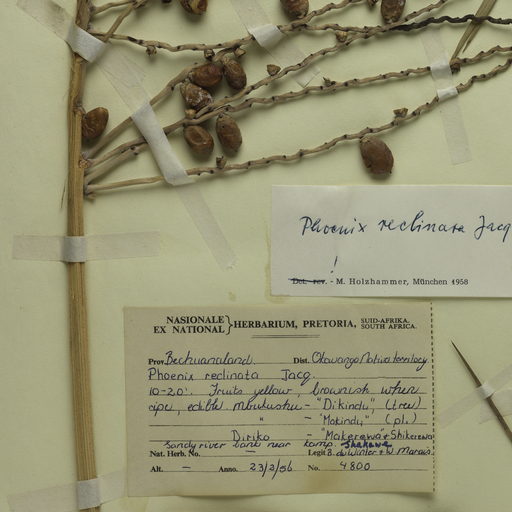 Phoenix reclinata Jacq
!
Det. rev. - M. Holzhammer, München 1958
NASIONALE EX NATIONAL } HERBARIUM, PRETORIA, SUID-AFRIKA. SOUTH AFRICA.
Prov. Bechuanaland. Dist. Okavango Native territory
Phoenix reclinata Jacq.
10-20'. Fruits yellow, brownish when
ripe, edible. Mbukushu - "Dikindu", (tree)
" - "Makindu" (pl.)
Diriko - "Makerewa" & Shikerewa
Sandy river bank near kamp. Shakawe
Nat. Herb. No. — Legit B. de Winter & W. Marais
Alt. — Anno. 23/2/56 No. 4800